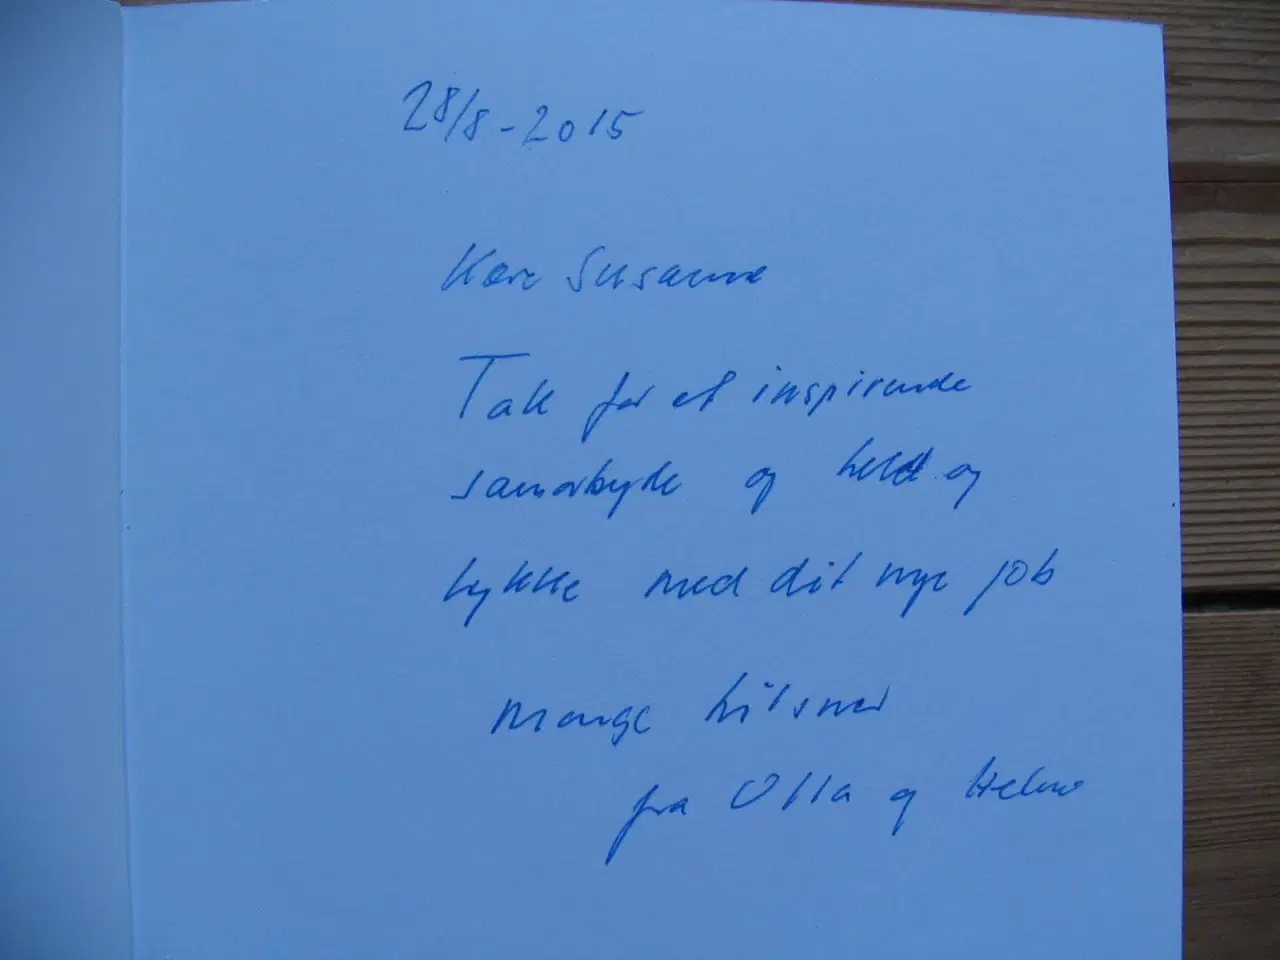 28/8-2015
Kære Susanne
Tak for et inspirerende
samarbejde og held og
lykke med dit nye job
mange hilsner
fra Ulla og Helene